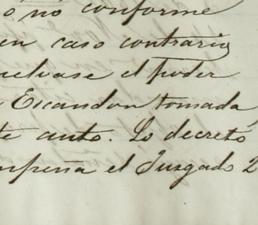 o no conforme
en caso contrario
uelvase el poder
Escandon tomada
te auto. Lo decreto
mpeña el Juzgado 2